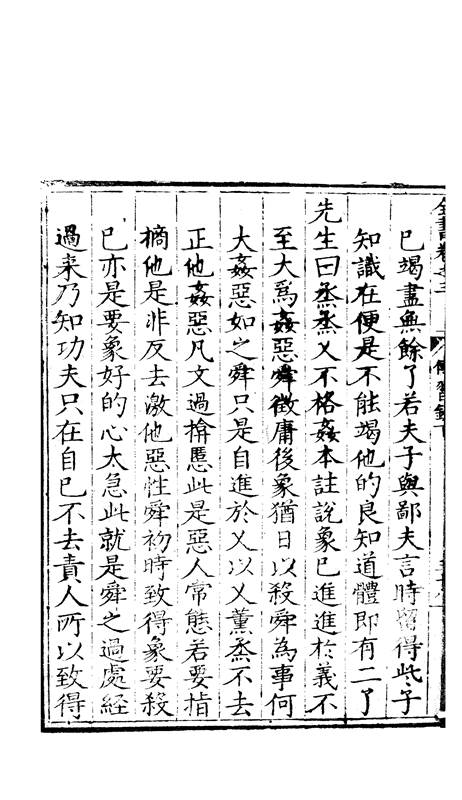 已竭盡無餘了若夫子與鄙夫言時留得些子
知識在便是不能竭他的良知道體即有二了
先生曰烝烝乂不格姦本註說象已進進於義不
至大為姦惡舜徵庸後象猶日以殺舜為事何
大姦惡如之舜只是自進於乂以乂薰烝不去
正他姦惡凡文過揜慝此是惡人常態若要指
摘他是非反去激他惡性舜初時致得象要殺
已亦是要象好的心太急此就是舜之過處經
過來乃知功夫只在自已不去責人所以致得